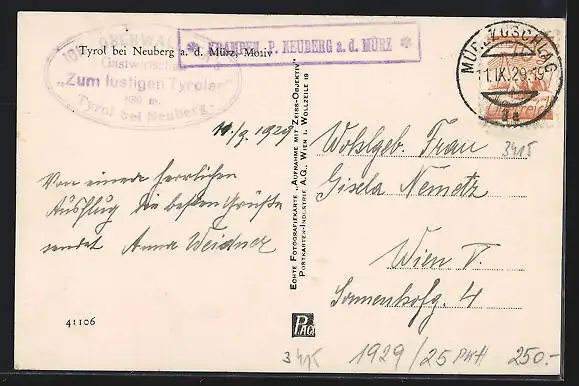 OBERWAL
Gastwirtschaft
„Zum lustigen Tyroler"
Tyrol bei Neuberg
Tyrol bei Neuberg a. d. Mürz, Motiv
KRAMPEN, P. NEUBERG a. d. MÜRZ
MÜRZZUSCHLAG
11.IX.29.19
Österreich
11/9 1929
Von einem herrlichen
Ausflug die besten Grüße
sendet Anna Weidner
Wohlgeb. Frau
Gisela Nemetz
Wien V.
Sonnenhofg. 4
3415
Echte Fotografiekarte „Aufnahme mit Zeiss-Objektiv"
Postkarten-Industrie A.G., Wien I. Wollzeile 19
41106
PAG
1929/25 PMH 250.-